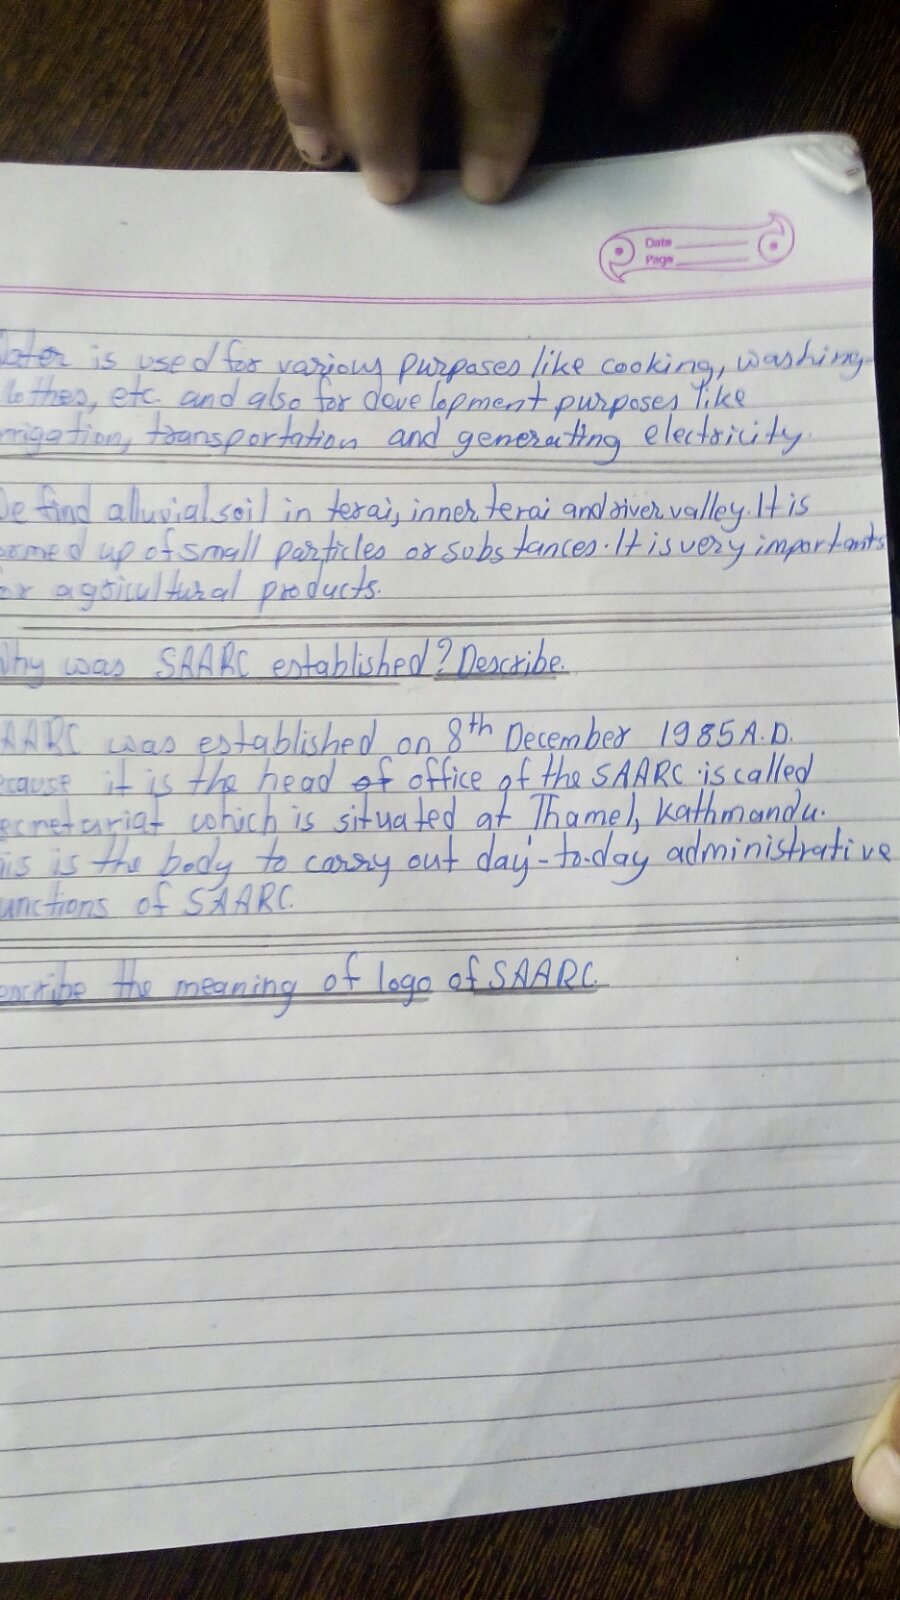 Date
Page
Water is used for various purposes like cooking, washing
clothes, etc. and also for development purposes like
irrigation, transportation and generating electricity.
We find alluvial soil in terai, inner terai and river valley. It is
formed up of small particles or substances. It is very importants
for agricultural products.
Why was SAARC established? Describe.
SAARC was established on 8th December 1985 A.D.
because it is the head of office of the SAARC is called
secretariat which is situated at Thamel, Kathmandu.
This is the body to carry out day-to-day administrative
functions of SAARC.
the meaning of logo of SAARC.